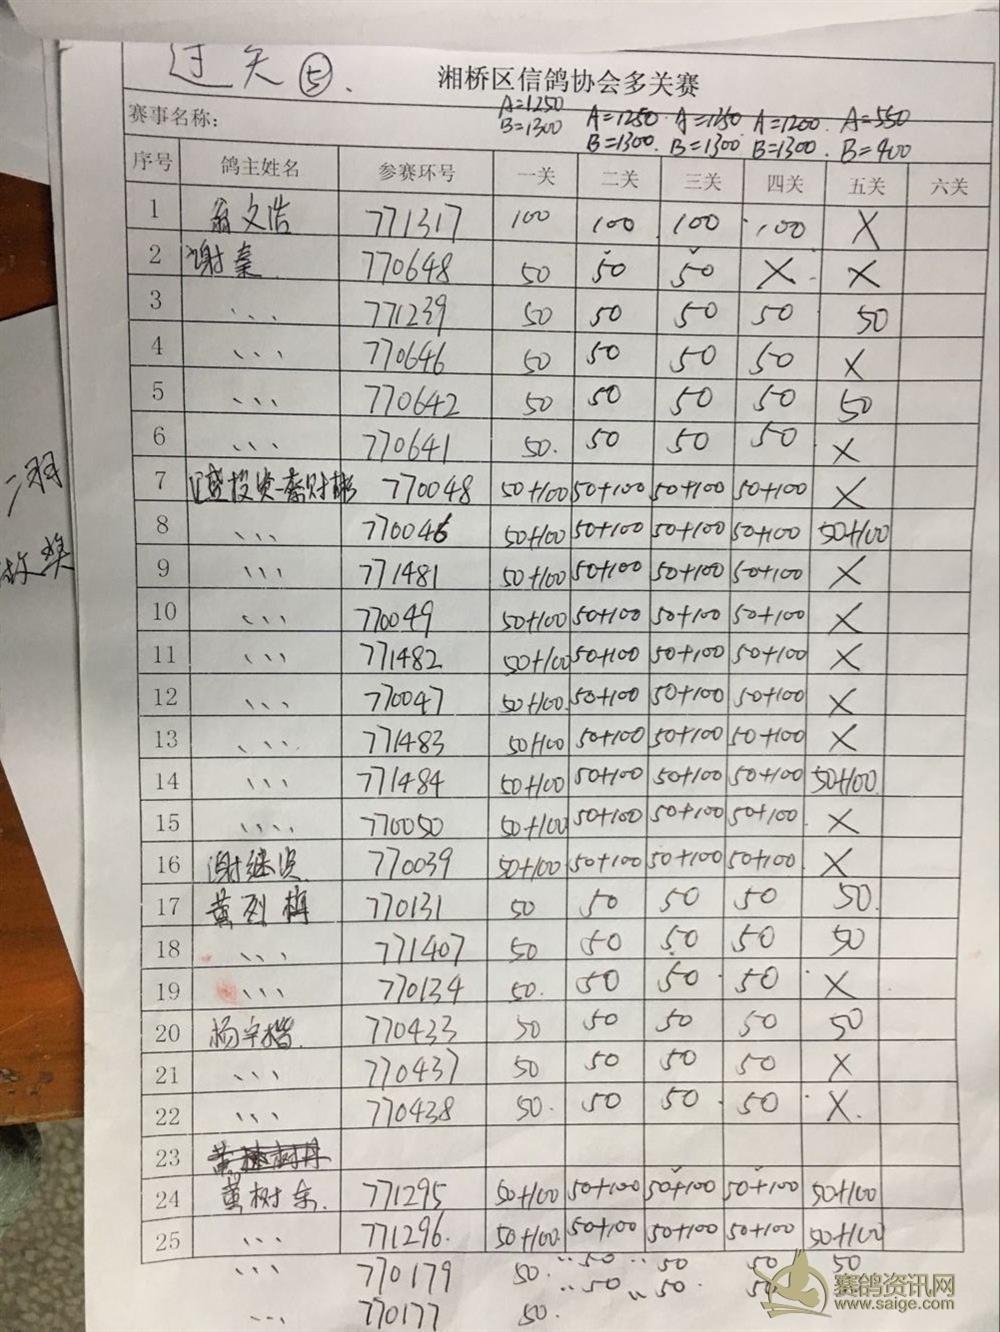 过关⑤.
湘桥区信鸽协会多关赛
赛事名称: A=1250 A=1250 A=1250 A=1200 A=550
B=1300 B=1300 B=1300 B=1300 B=400
序号 鸽主姓名 参赛环号 一关 二关 三关 四关 五关 六关
1 翁文浩 771317 100 100 100 100 X
2 谢秦 770648 50 50 50 X X
3 、、、 771239 50 50 50 50 50
4 、、、 770646 50 50 50 50 X
5 、、、 770642 50 50 50 50 50
6 、、、 770641 50. 50 50 50 X
7 投资 770048 50+100 50+100 50+100 50+100 X
8 、、、 770046 50+100 50+100 50+100 50+100 50+100
9 、、、 771481 50+100 50+100 50+100 50+100 X
10 、、、 770049 50+100 50+100 50+100 50+100 X
11 、、、 771482 50+100 50+100 50+100 50+100 X
12 、、、 770047 50+100 50+100 50+100 50+100 X
13 、、、 771483 50+100 50+100 50+100 50+100 X
14 、、、 771484 50+100 50+100 50+100 50+100 50+100
15 、、、、 770050 50+100 50+100 50+100 50+100 X
16 谢继 770039 50+100 50+100 50+100 50+100 X
17 黄烈 770131 50 50 50 50 50.
18 、、、 771407 50 50 50 50 50
19 、、、 770134 50. 50 50 50 X
20 杨宇楷 770433 50 50 50 50 50
21 、、、 770437 50 50 50 50 X
22 、、、 770438 50. 50 50 50 X.
23
24 黄树 771295 50+100 50+100 50+100 50+100 50+100
25 、、、 771296. 50+100 50+100 50+100 50+100 50+100
、、、 770179 50. 50 50 50 50
、、、 770177 50. 50 50.
二羽
奖
赛鸽资讯网
www.saige.com